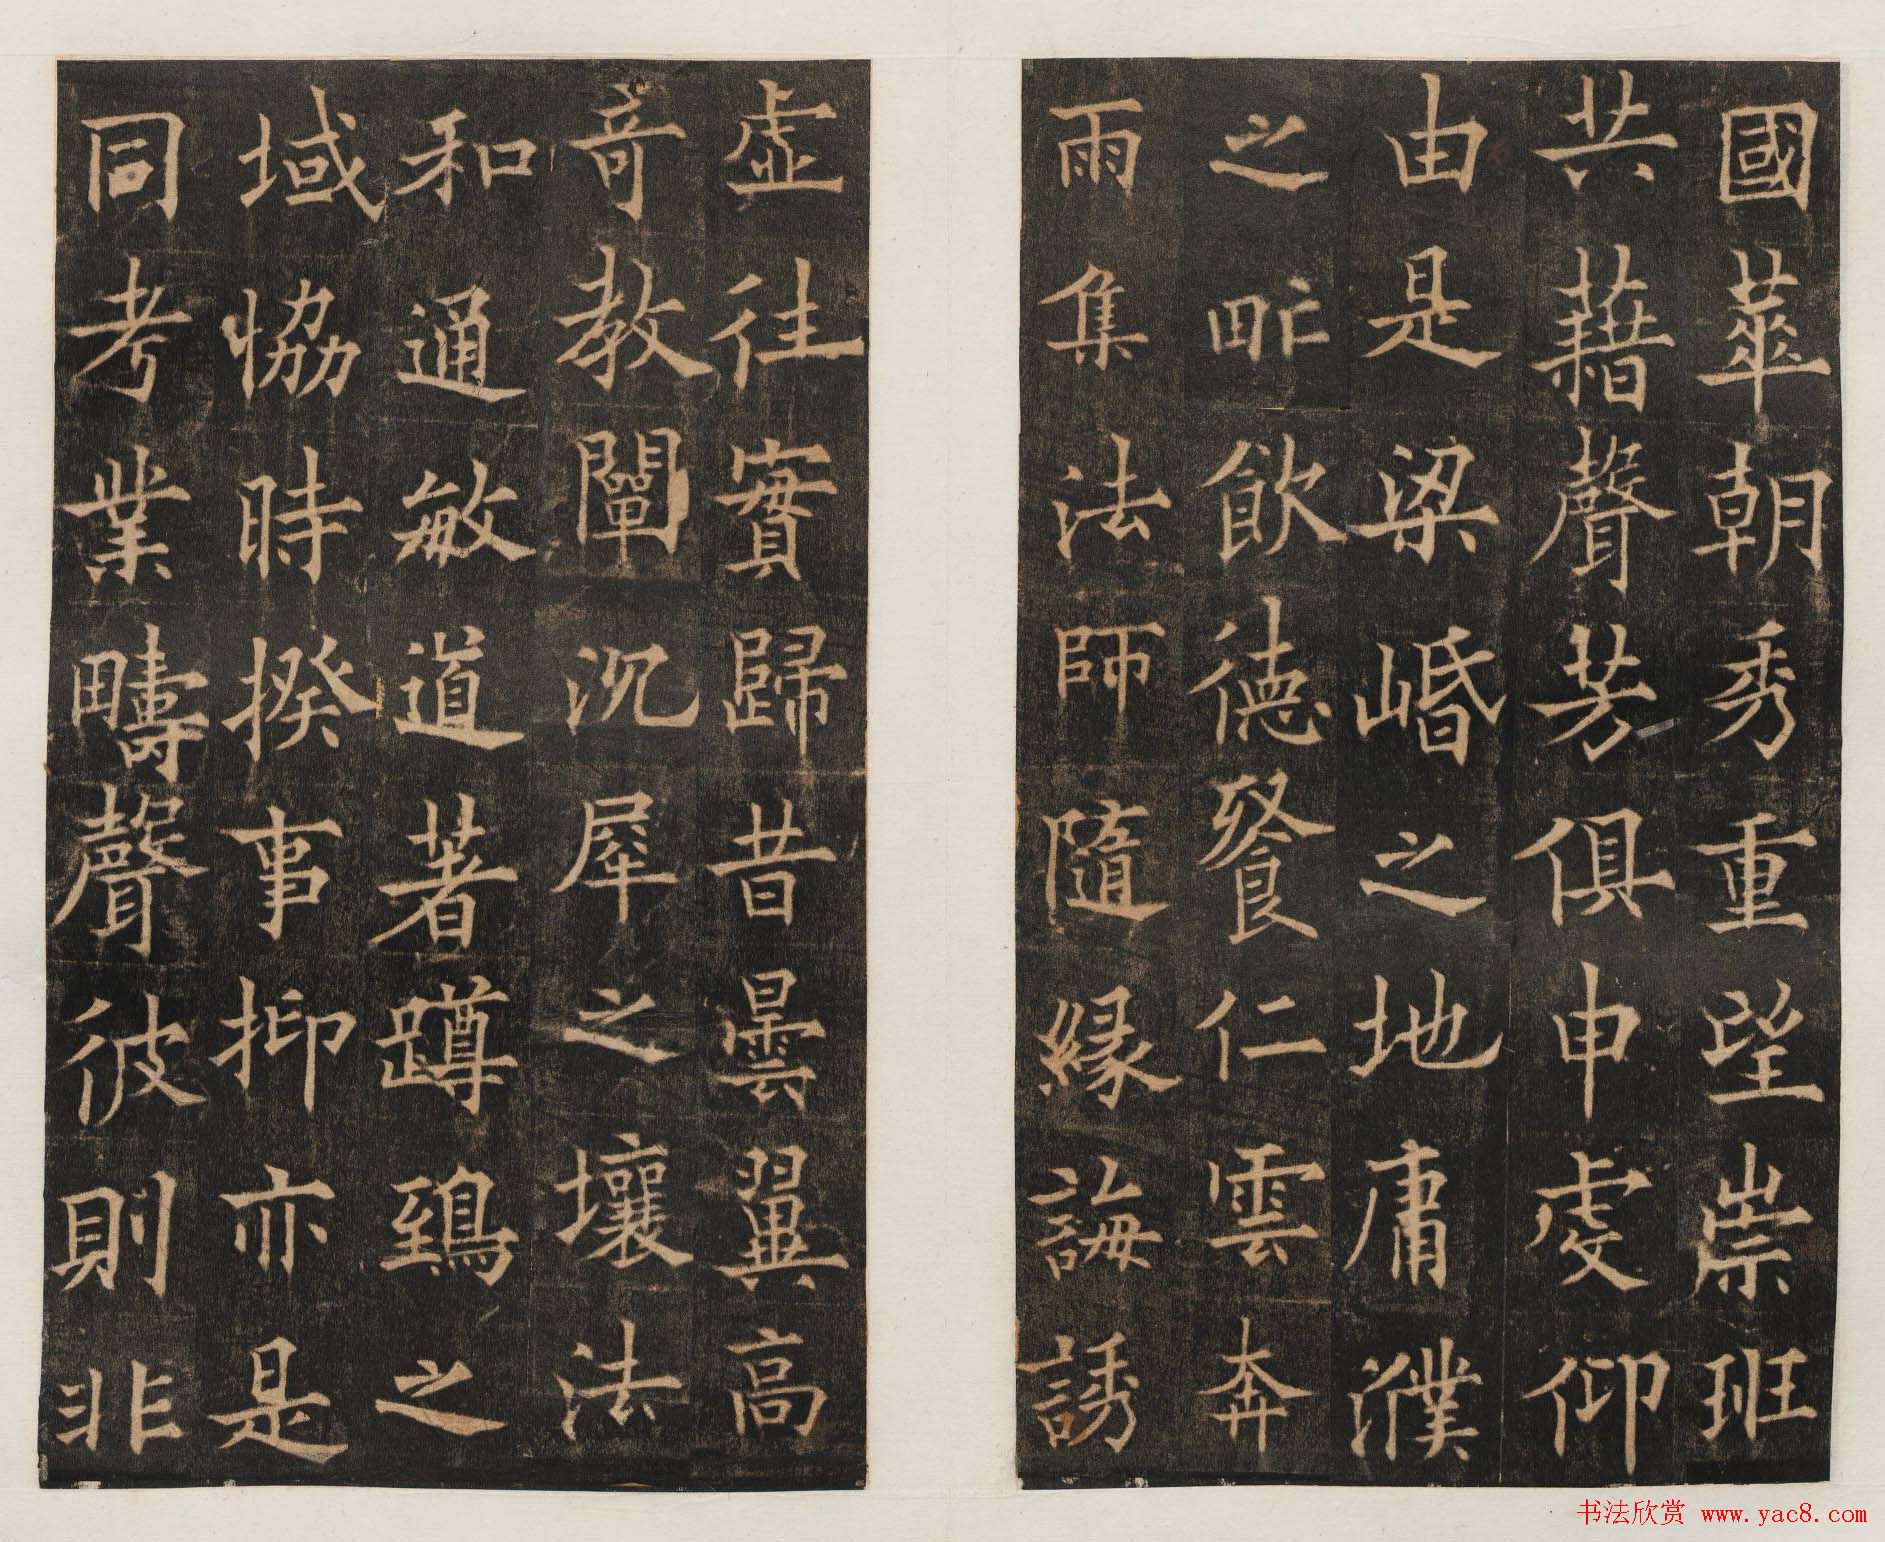 國華朝秀重望崇班
共藉聲芳俱申虔仰
由是梁㟭之地庸濮
之甿飲德飡仁雲奔
雨集法師隨緣誨誘
虛往實歸昔曇翼高
奇教闡沉犀之壤法
和通敏道著蹲鵄之
域協時揆事抑亦是
同考業疇聲彼則非
书法欣赏 www.yac8.com